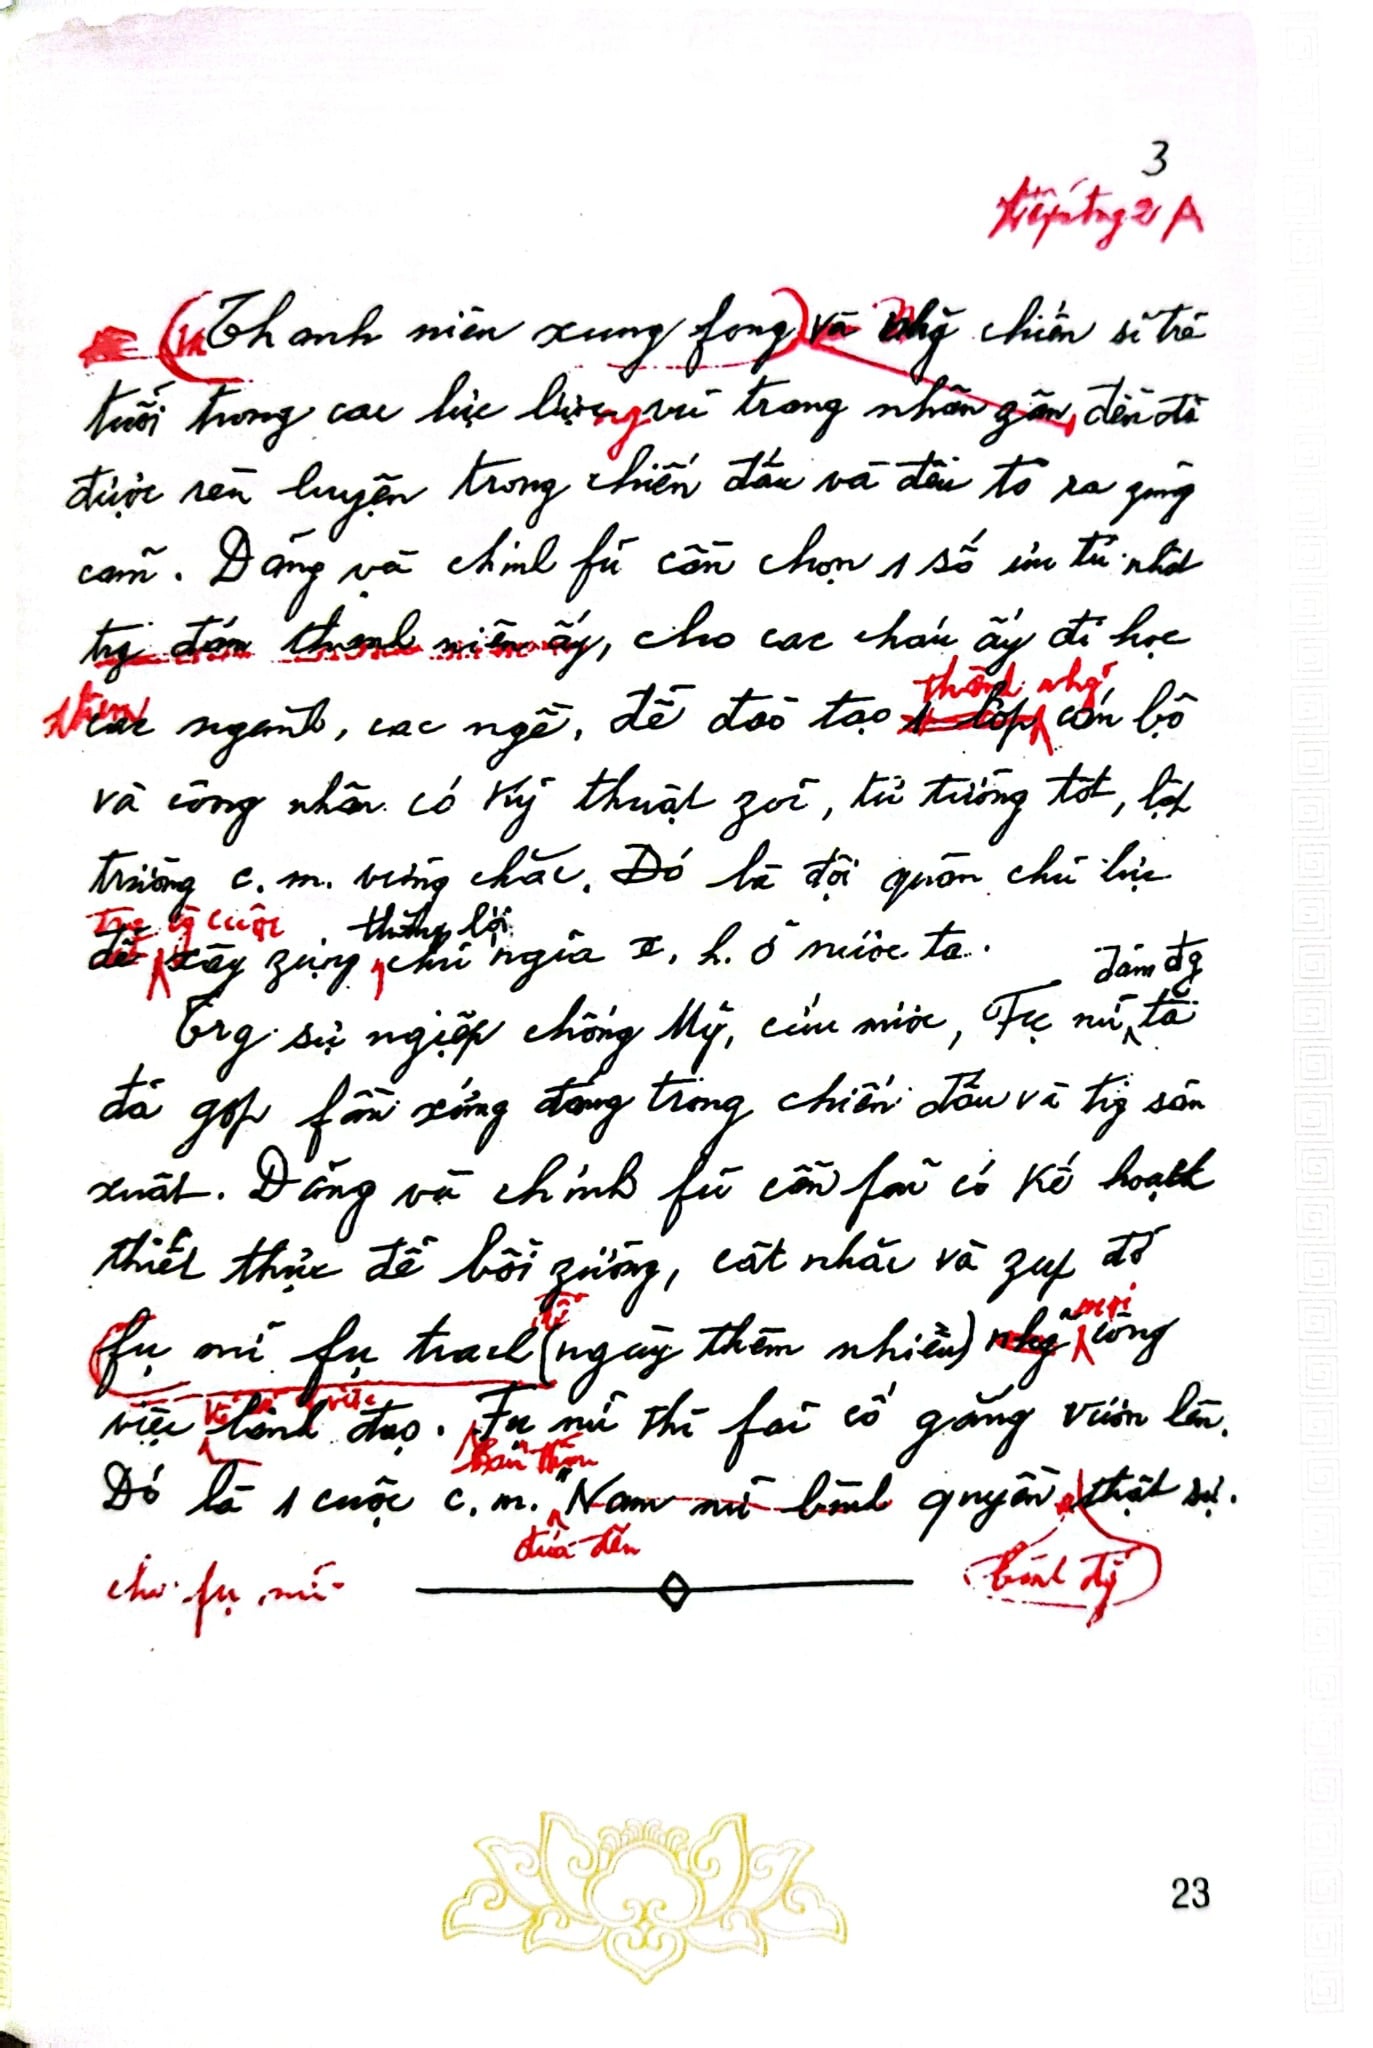 3
tiếp trg 2 A
Thanh niên xung fong và nhg chiến sĩ trẻ
tuổi trong các lực lượng vũ trang nhân zân đều đã
được rèn luyện trong chiến đấu và đều tỏ ra zũng
cảm. Đảng và chính fủ cần chọn 1 số ưu tú nhất
trg đám thanh niên ấy, cho các cháu ấy đi học
thêm
thành nhg
các ngành, các ngề, để đào tạo 1 lớp cán bộ
và công nhân có kỹ thuật zỏi, tư tưởng tốt, lập
trường c.m. vững chắc. Đó là đội quân chủ lực
trg cg cuộc
thắng lợi
để xây zựng chủ ngĩa x.h. ở nước ta.
đảm đg
Trg sự ngiệp chống Mỹ, cứu nước, Fụ nữ ta
đã góp fần xứng đáng trong chiến đấu và trg sản
xuất. Đảng và chính fủ cần fải có kế hoạch
thiết thực để bồi zưỡng, cất nhắc và zúp đỡ
để
mọi
fụ nữ fụ trách (ngày thêm nhiều) nhg công
việc lãnh đạo. Fụ nữ thì fải cố gắng vươn lên.
kể cả
bản thân
Đó là 1 cuộc c.m. "Nam nữ bình quyền thật sự.
đưa đến
bình đg
cho fụ nữ
23